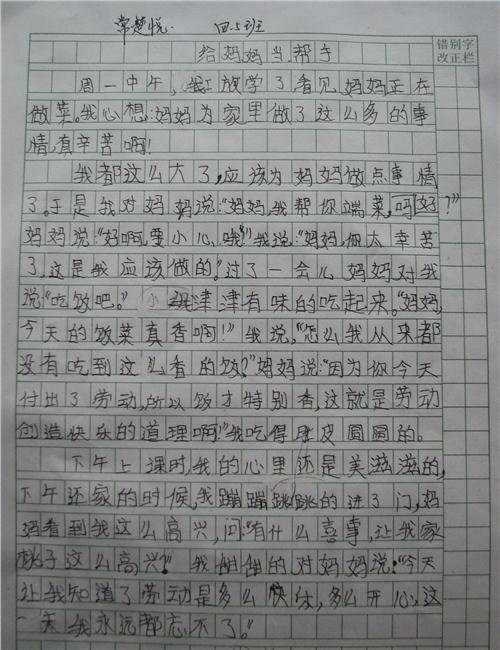 常楚悦. 四.5班
给妈妈当帮手
错别字
改正栏
周一中午,我放学了看见妈妈正在
做菜。我心想:妈妈为家里做了这么多的事
情,真辛苦啊!
我都这么大了,应该为妈妈做点事情
了。于是我对妈妈说:“妈妈,我帮你端菜,吗好?”
妈妈说:“好啊,要小心哦!”我说:“妈妈,你太幸苦
了,这是我应该做的。”过了一会儿妈妈对我
说“吃饭吧。”津津有味的吃起来。“妈妈,
今天的饭菜真香啊!”我说,“怎么我从来都
没有吃到这么香的饭?”妈妈说:“因为你今天
付出了劳动,所以饭才特别香,这就是劳动
创造快乐的道理啊!”我吃得肚皮圆圆的。
下午上课时,我的心里还是美滋滋的,
下午还家的时候,我蹦蹦跳跳的进了门,妈
妈看到我这么高兴,问:“有什么喜事,让我家
桃子这么高兴?”我甜甜的对妈妈说:“今天
让我知道了劳动是多么快乐,多么开心,这
一天我永远都忘不了。”